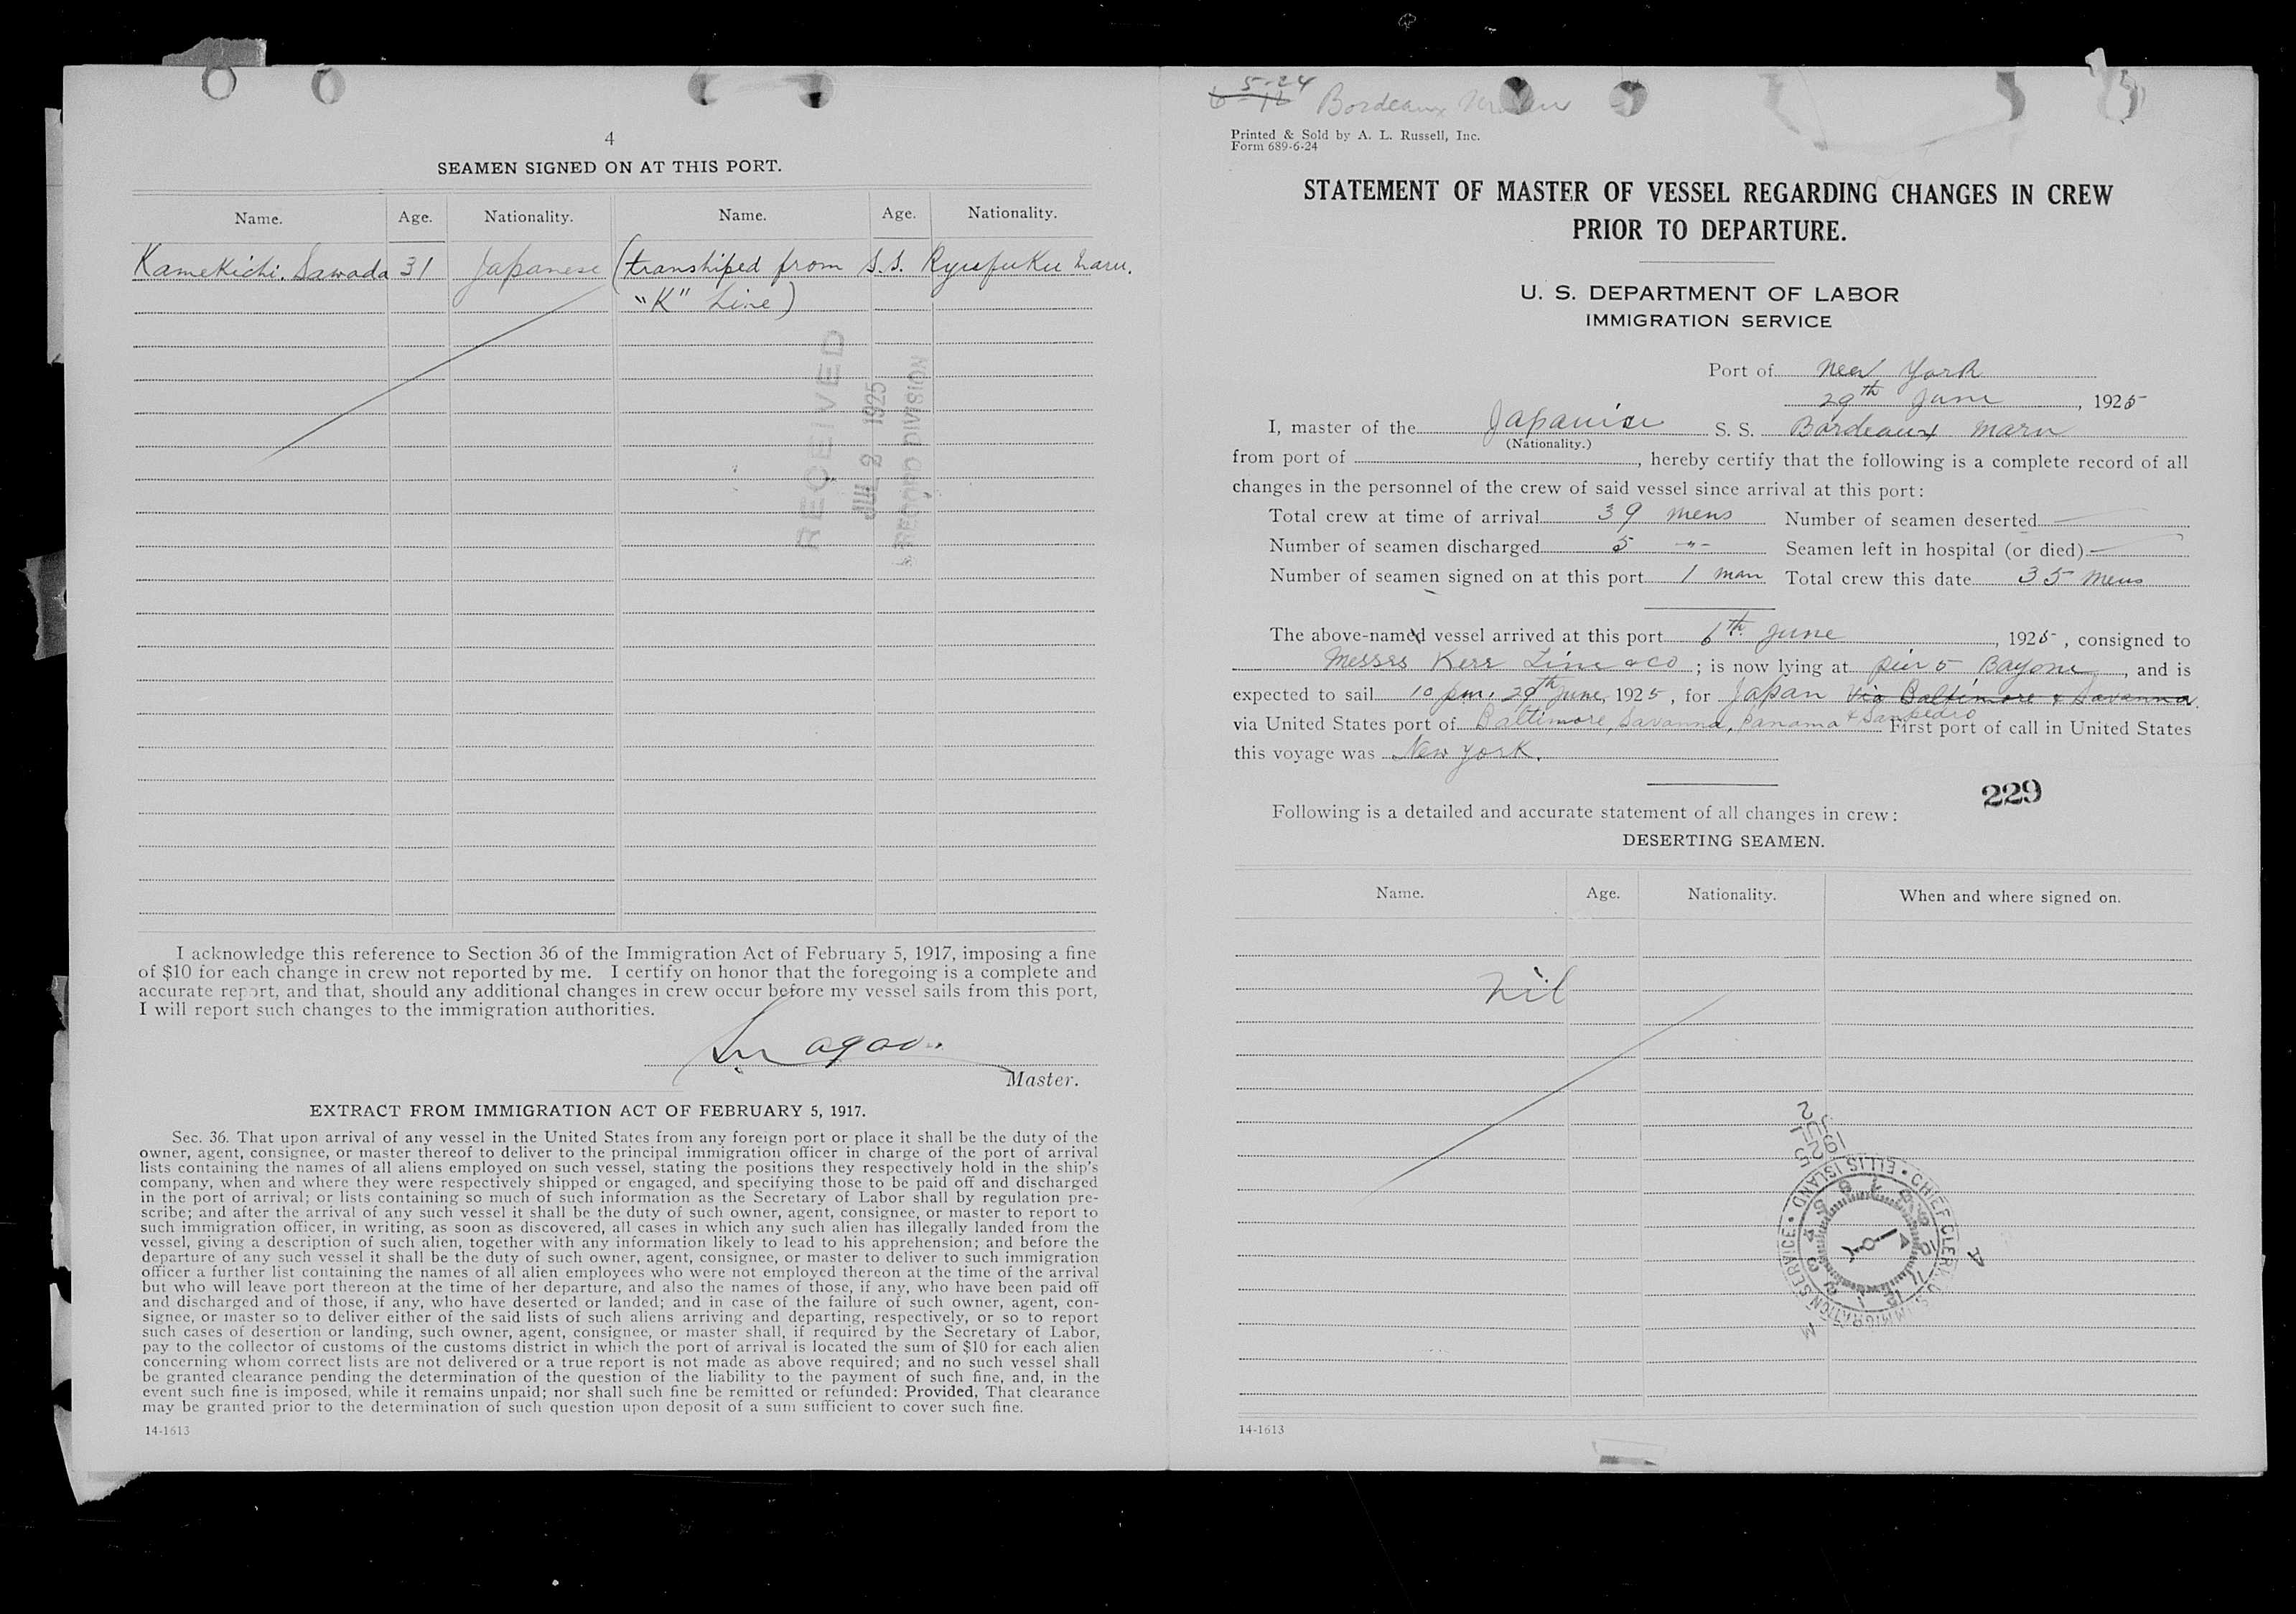 4
SEAMEN SIGNED ON AT THIS PORT.
Name. Age. Nationality. Name. Age. Nationality.
Kamekichi. Sawada 31 Japanese (transhiped from S.S. Ryufuku Maru.
"K" Line)
RECEIVED
JUL 2 1925
RECORD DIVISION
I acknowledge this reference to Section 36 of the Immigration Act of February 5, 1917, imposing a fine
of $10 for each change in crew not reported by me. I certify on honor that the foregoing is a complete and
accurate report, and that, should any additional changes in crew occur before my vessel sails from this port,
I will report such changes to the immigration authorities.
Master.
EXTRACT FROM IMMIGRATION ACT OF FEBRUARY 5, 1917.
Sec. 36. That upon arrival of any vessel in the United States from any foreign port or place it shall be the duty of the
owner, agent, consignee, or master thereof to deliver to the principal immigration officer in charge of the port of arrival
lists containing the names of all aliens employed on such vessel, stating the positions they respectively hold in the ship's
company, when and where they were respectively shipped or engaged, and specifying those to be paid off and discharged
in the port of arrival; or lists containing so much of such information as the Secretary of Labor shall by regulation pre-
scribe; and after the arrival of any such vessel it shall be the duty of such owner, agent, consignee, or master to report to
such immigration officer, in writing, as soon as discovered, all cases in which any such alien has illegally landed from the
vessel, giving a description of such alien, together with any information likely to lead to his apprehension; and before the
departure of any such vessel it shall be the duty of such owner, agent, consignee, or master to deliver to such immigration
officer a further list containing the names of all alien employees who were not employed thereon at the time of the arrival
but who will leave port thereon at the time of her departure, and also the names of those, if any, who have been paid off
and discharged and of those, if any, who have deserted or landed; and in case of the failure of such owner, agent, con-
signee, or master so to deliver either of the said lists of such aliens arriving and departing, respectively, or so to report
such cases of desertion or landing, such owner, agent, consignee, or master shall, if required by the Secretary of Labor,
pay to the collector of customs of the customs district in which the port of arrival is located the sum of $10 for each alien
concerning whom correct lists are not delivered or a true report is not made as above required; and no such vessel shall
be granted clearance pending the determination of the question of the liability to the payment of such fine, and, in the
event such fine is imposed, while it remains unpaid; nor shall such fine be remitted or refunded: Provided, That clearance
may be granted prior to the determination of such question upon deposit of a sum sufficient to cover such fine.
14-1613
5-24
6-16 Bordeaux Maru
Printed & Sold by A. L. Russell, Inc.
Form 689-6-24
STATEMENT OF MASTER OF VESSEL REGARDING CHANGES IN CREW
PRIOR TO DEPARTURE.
U. S. DEPARTMENT OF LABOR
IMMIGRATION SERVICE
Port of New York
29th June, 1925
I, master of the Japanise S. S. Bordeaux Maru
(Nationality.)
from port of , hereby certify that the following is a complete record of all
changes in the personnel of the crew of said vessel since arrival at this port:
Total crew at time of arrival 39 mens Number of seamen deserted —
Number of seamen discharged 5 -"- Seamen left in hospital (or died) —
Number of seamen signed on at this port 1 man Total crew this date 35 mens
The above-named vessel arrived at this port 6th June, 1925, consigned to
Messrs Kerr Line & co; is now lying at pier 5 Bayone, and is
expected to sail 10 pm. 29th June, 1925, for Japan via Baltimore & Savanna
via United States port of Baltimore, Savanna, Panama & Sanpedro First port of call in United States
this voyage was New York.
229
Following is a detailed and accurate statement of all changes in crew:
DESERTING SEAMEN.
Name. Age. Nationality. When and where signed on.
Nil
1925 JUL 2
CHIEF CLERK U.S. IMMIGRATION SERVICE • ELLIS ISLAND •
1 2 3 4 5 6 7 8 9 10 11 12
A M
14-1613